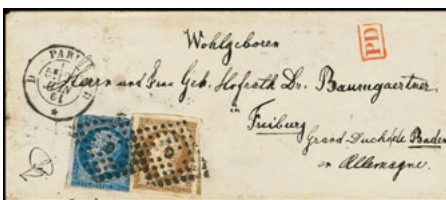 PD
PARIS
JUIN
61
Wohlgeboren
Herrn und Frau Geh. Hofrath Dr. Baumgaertner
in
Freiburg
Grand-Duché de Baden
en Allemagne.